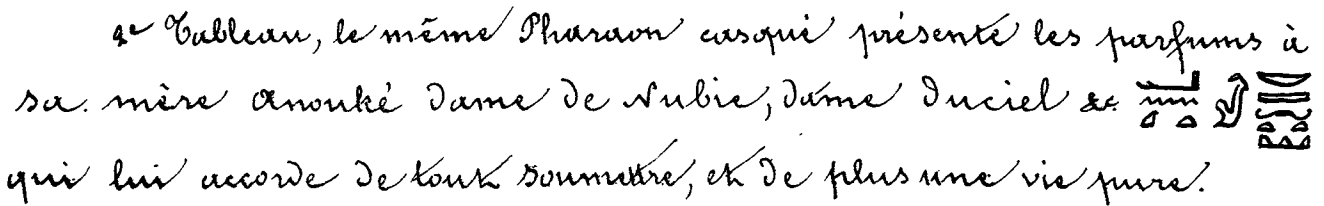 2e Tableau, le même Pharaon casqué présente les parfums à
sa mère Anouké dame de Nubie, dame du ciel &c
qui lui accorde de tout soumettre, et de plus une vie pure.